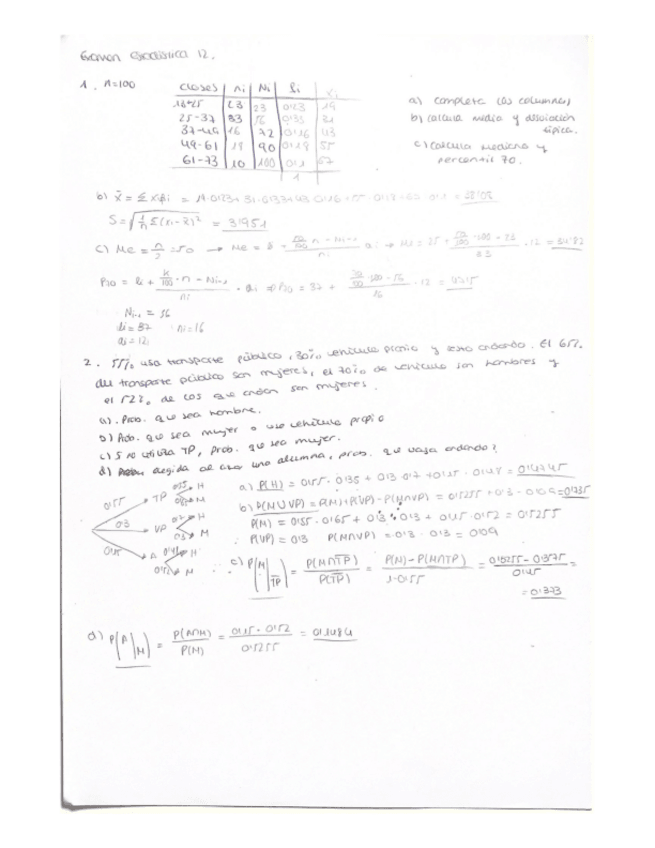 Examen Estadística 12.
1. n=100
clases ni Ni fi xi
13-25 23 23 0'23 19
25-37 33 56 0'33 31
37-49 16 72 0'16 43
49-61 18 90 0'18 55
61-73 10 100 0'1 67
1
a) completa las columnas
b) calcula media y desviación típica.
c) calcula mediana y percentil 70.
b) x̄ = Σ xi fi = 19·0'23 + 31·0'33 + 43·0'16 + 55·0'18 + 67·0'1 = 38'08
S = √(1/n Σ(xi - x̄)²) =
c) Me = n/2 = 50 → Me = li + (50/100 · n - Ni-1)/ni · ai ⇒ Me = 25 + (50/100 · 100 - 23)/33 · 12 = 34'82
P70 = li + (k/100 · n - Ni-1)/ni · ai ⇒ P70 = 37 + (70/100 · 100 - 56)/16 · 12 = 47'5
Ni-1 = 56
li = 37 ni = 16
ai = 12
2. 55% usa transporte público, 30% vehículo propio y resto andando. El 65%
del transporte público son mujeres, el 70% de vehículo son hombres y
el 52% de los que andan son mujeres.
a) Prob. que sea hombre.
b) Prob. que sea mujer o use vehículo propio
c) Si no utiliza TP, prob. que sea mujer.
d) elegida al azar una alumna, prob. que vaya andando?
0'55 TP 0'35 H
0'65 M
0'3 VP 0'7 H
0'3 M
0'15 A 0'48 H
0'52 M
a) P(H) = 0'55 · 0'35 + 0'3 · 0'7 + 0'15 · 0'48 = 0'4745
b) P(M∪VP) = P(M) + P(VP) - P(M∩VP) = 0'5255 + 0'3 - 0'09 = 0'7355
P(M) = 0'55 · 0'65 + 0'3 · 0'3 + 0'15 · 0'52 = 0'5255
P(VP) = 0'3 P(M∩VP) = 0'3 · 0'3 = 0'09
c) P(M/T̄P̄) = P(M∩T̄P̄)/P(T̄P̄) = (P(M) - P(M∩TP))/(1 - 0'55) = (0'5255 - 0'3575)/0'45 =
= 0'373
d) P(A/M) = P(A∩M)/P(M) = (0'15 · 0'52)/0'5255 = 0'1484